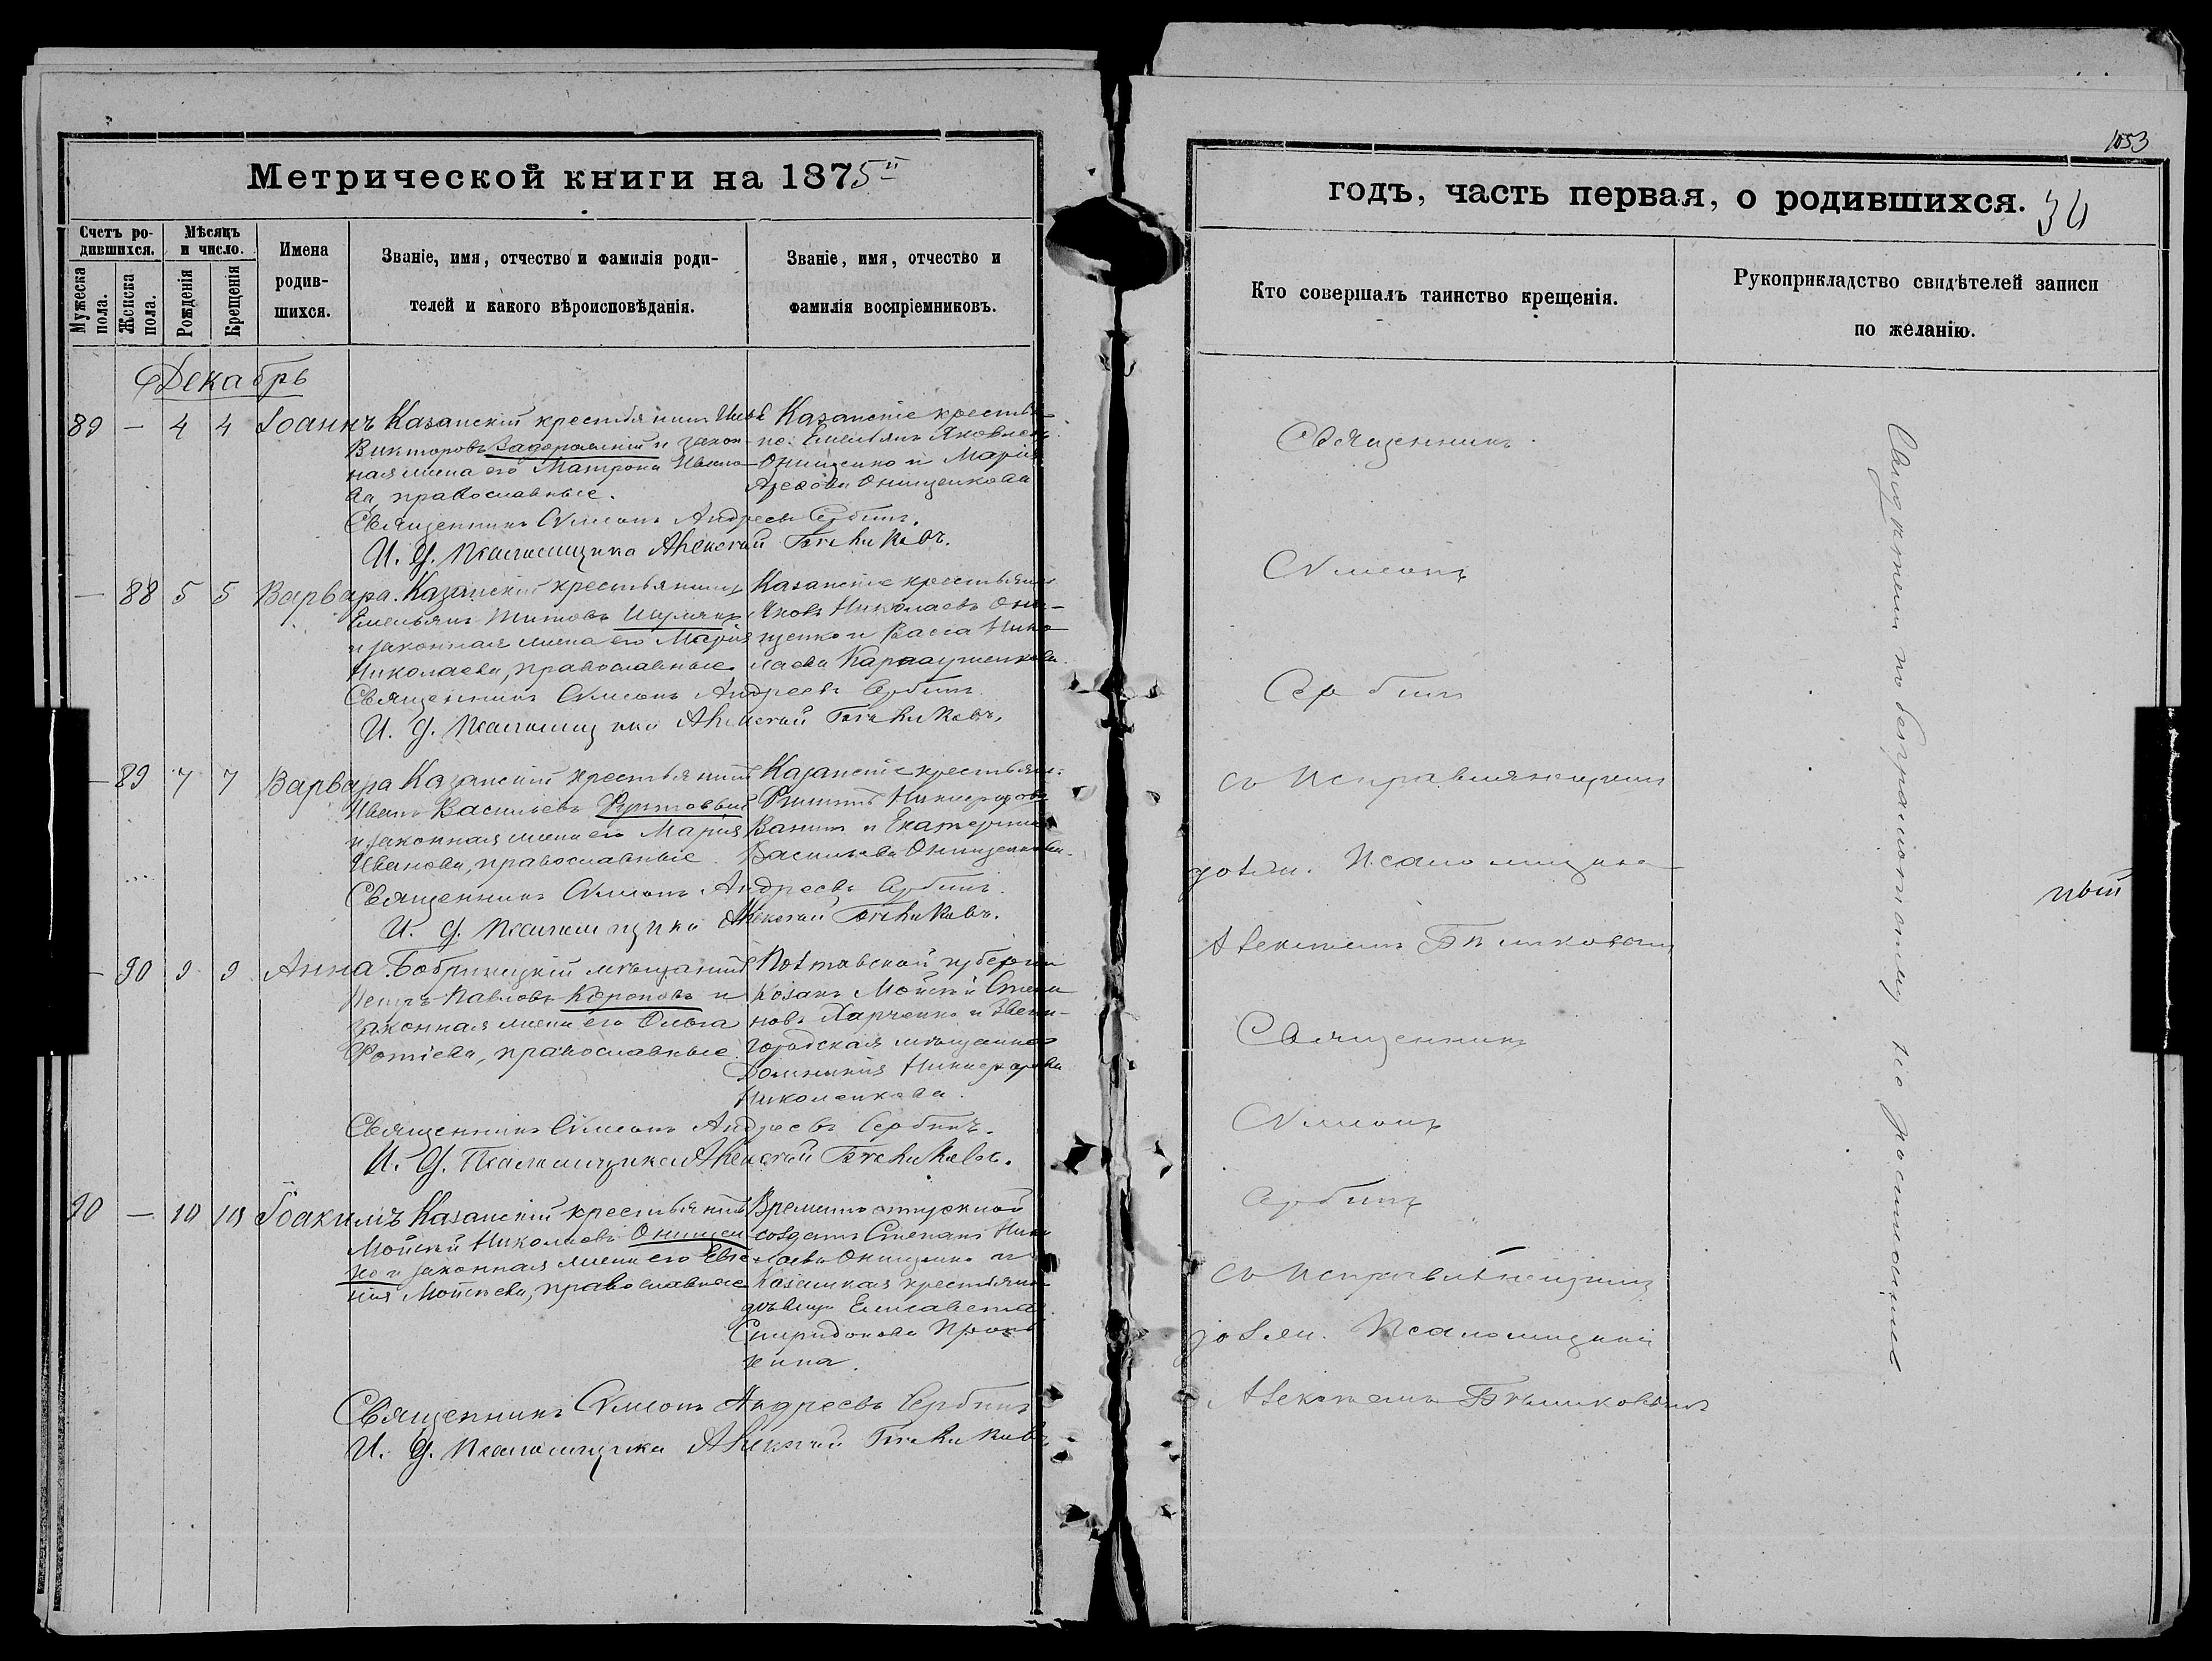 Метрической книги на 1875й
Счетъ ро-
дившихся.
Мѣсяцъ
и число.
Мужеска пола.
Женска пола.
Рожденія
Крещенія
Имена
родив-
шихся.
Званіе, имя, отчество и фамилія роди-
телей и какого вѣроисповѣданія.
Званіе, имя, отчество и
фамилія воспріемниковъ.
Декабрь
89 — 4 4 Іоаннъ
Казанскій крестьянинъ
Викторовъ Задорожній и закон-
ная жена его Матрона Ивано-
ва, православные.
Казанскіе крестья-
не: Емельянъ Яковлевъ
Онищенко и Марія
Онищенкова
Священникъ Симеонъ Андреевъ Сербинъ.
И. Д. Псаломщика Алексѣй Бѣликовъ.
— 88 5 5 Варвара
Казанскій крестьянинъ
Емельянъ Титовъ
и законная жена его Марія
Николаева, православные
Казанскіе крестьяне
Яковъ Николаевъ Они-
щенко и Васса Нико-
лаева
Священникъ Симеонъ Андреевъ Сербинъ.
И. Д. Псаломщика Алексѣй Бѣликовъ.
— 89 7 7 Варвара
Казанскій крестьянинъ
Иванъ Васильевъ
и законная жена его Марія
Иванова, православные.
Казанскіе крестьяне:
Филиппъ Никифоровъ
и Екатерина
Васильева Онищенкова.
Священникъ Симеонъ Андреевъ Сербинъ.
И. Д. Псаломщика Алексѣй Бѣликовъ.
— 90 9 9 Анна
Бобринецкій мѣщанинъ
Петръ Павловъ Короповъ и
законная жена его Ольга
Фотіева, православные.
Полтавской губерніи
козакъ Мойсей Степа-
новъ Харченко и Звени-
городская мѣщанка
Домникія Никифорова
Николенкова.
Священникъ Симеонъ Андреевъ Сербинъ.
И. Д. Псаломщика Алексѣй Бѣликовъ.
90 — 10 10 Іоакимъ
Казанскій крестьянинъ
Мойсей Николаевъ Онищен-
ко и законная жена его Евге-
нія Мойсеева, православные
Временно отпускной
солдатъ Степанъ Нико-
лаевъ Онищенко и
Казанская крестьянка
дѣвица Елисавета
Спиридонова
Священникъ Симеонъ Андреевъ Сербинъ
И. Д. Псаломщика Алексѣй Бѣликовъ
1053
годъ, часть первая, о родившихся.
Кто совершалъ таинство крещенія.
Рукоприкладство свидѣтелей записи
по желанію.
Священникъ
Симеонъ
Сербинъ
съ Исправляющимъ
долж. Псаломщика
Алексѣемъ Бѣликовымъ
Священникъ
Симеонъ
Сербинъ
съ Исправляющимъ
долж. Псаломщика
Алексѣемъ Бѣликовымъ
Свидѣтели по безграмотству не росписались
ный